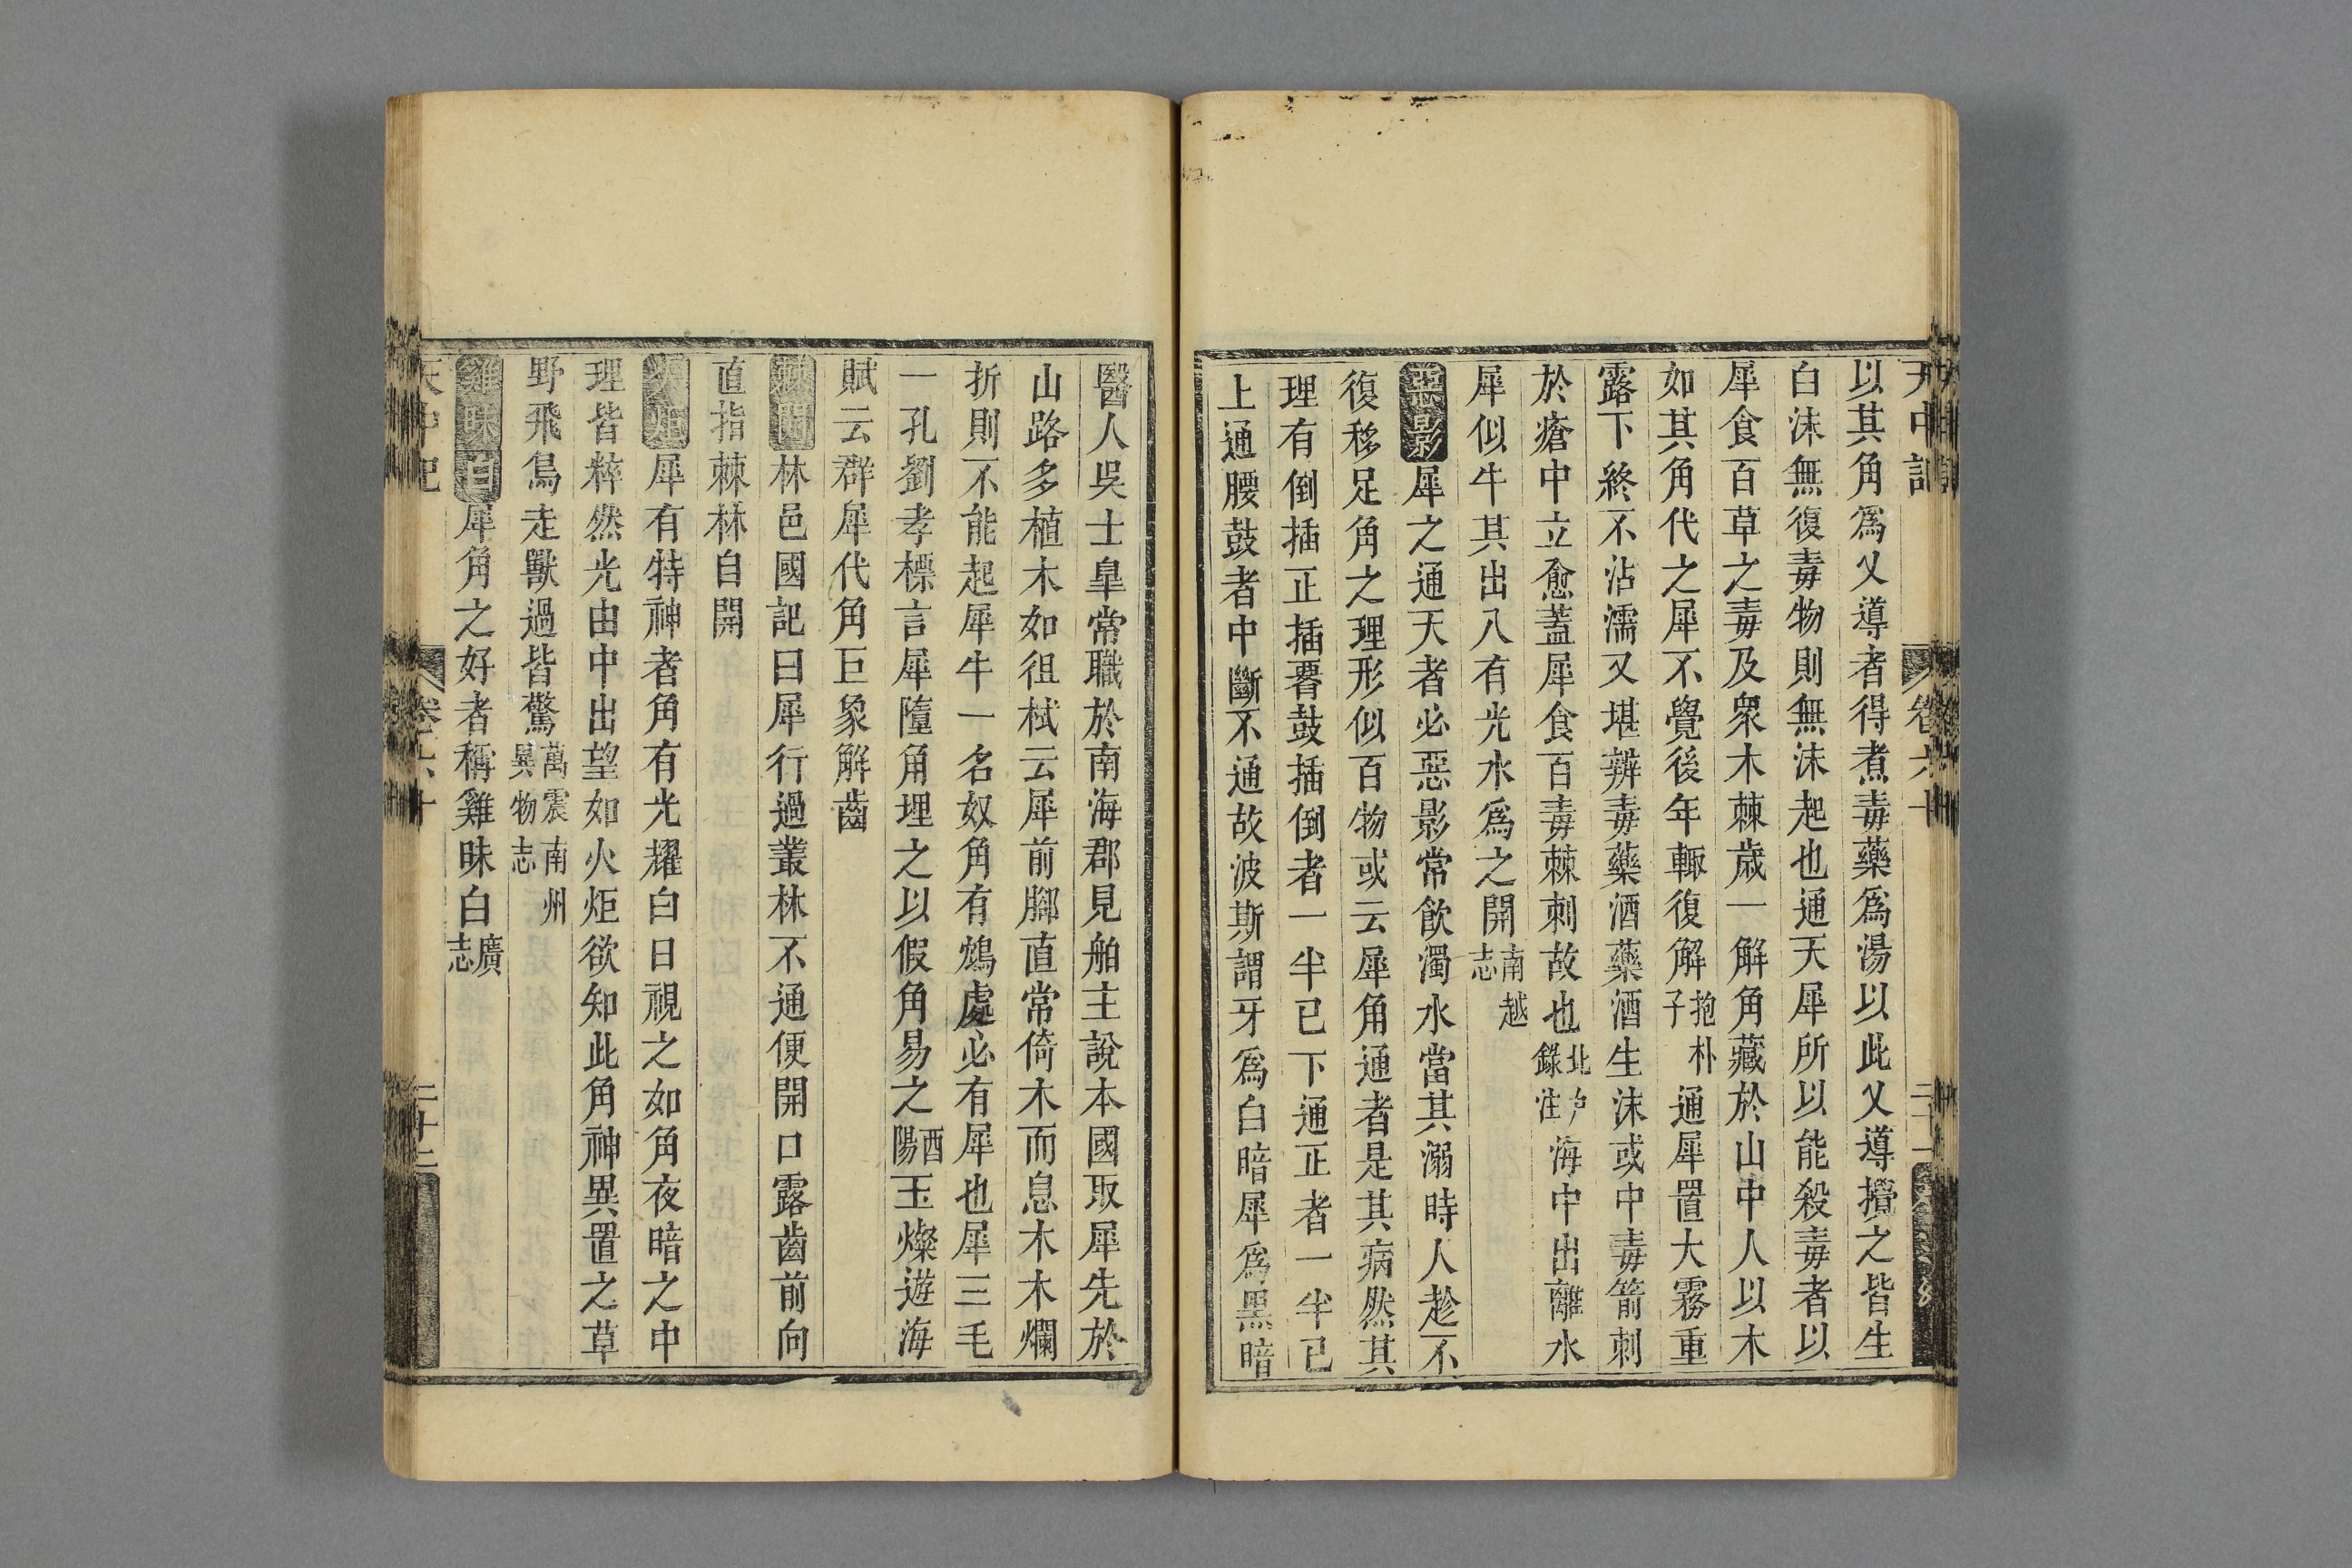 天中記 卷六十 二十一
以其角爲乂導者得煮毒藥爲湯以此乂導攪之皆生
白沫無復毒物則無沫起也通天犀所以能殺毒者以
犀食百草之毒及衆木棘歲一解角藏於山中人以木
如其角代之犀不覺後年輙復解抱朴子通犀置大霧重
露下終不沾濡又堪辨毒藥酒藥酒生沫或中毒箭刺
於瘡中立愈蓋犀食百毒棘刺故也北戶錄注海中出離水
犀似牛其出入有光水爲之開南越志
惡影犀之通天者必惡影常飲濁水當其溺時人趁不
復移足角之理形似百物或云犀角通者是其病然其
理有倒插正插腰鼓插倒者一半已下通正者一半已
上通腰鼓者中斷不通故波斯謂牙爲白暗犀爲黑暗
醫人吳士臯常職於南海郡見舶主說本國取犀先於
山路多植木如徂栻云犀前腳直常倚木而息木木爛
折則不能起犀牛一名奴角有鴆處必有犀也犀三毛
一孔劉孝標言犀墮角埋之以假角易之酉陽玉燦遊海
賦云群犀代角巨象解齒
棘開林邑國記曰犀行過叢林不通便開口露齒前向
直指棘林自開
火炬犀有特神者角有光耀白日視之如角夜暗之中
理皆粹然光由中出望如火炬欲知此角神異置之草
野飛鳥走獸過皆驚萬震南州異物志
雞昧白犀角之好者稱雞昧白廣志
天中記 卷六十 二十二